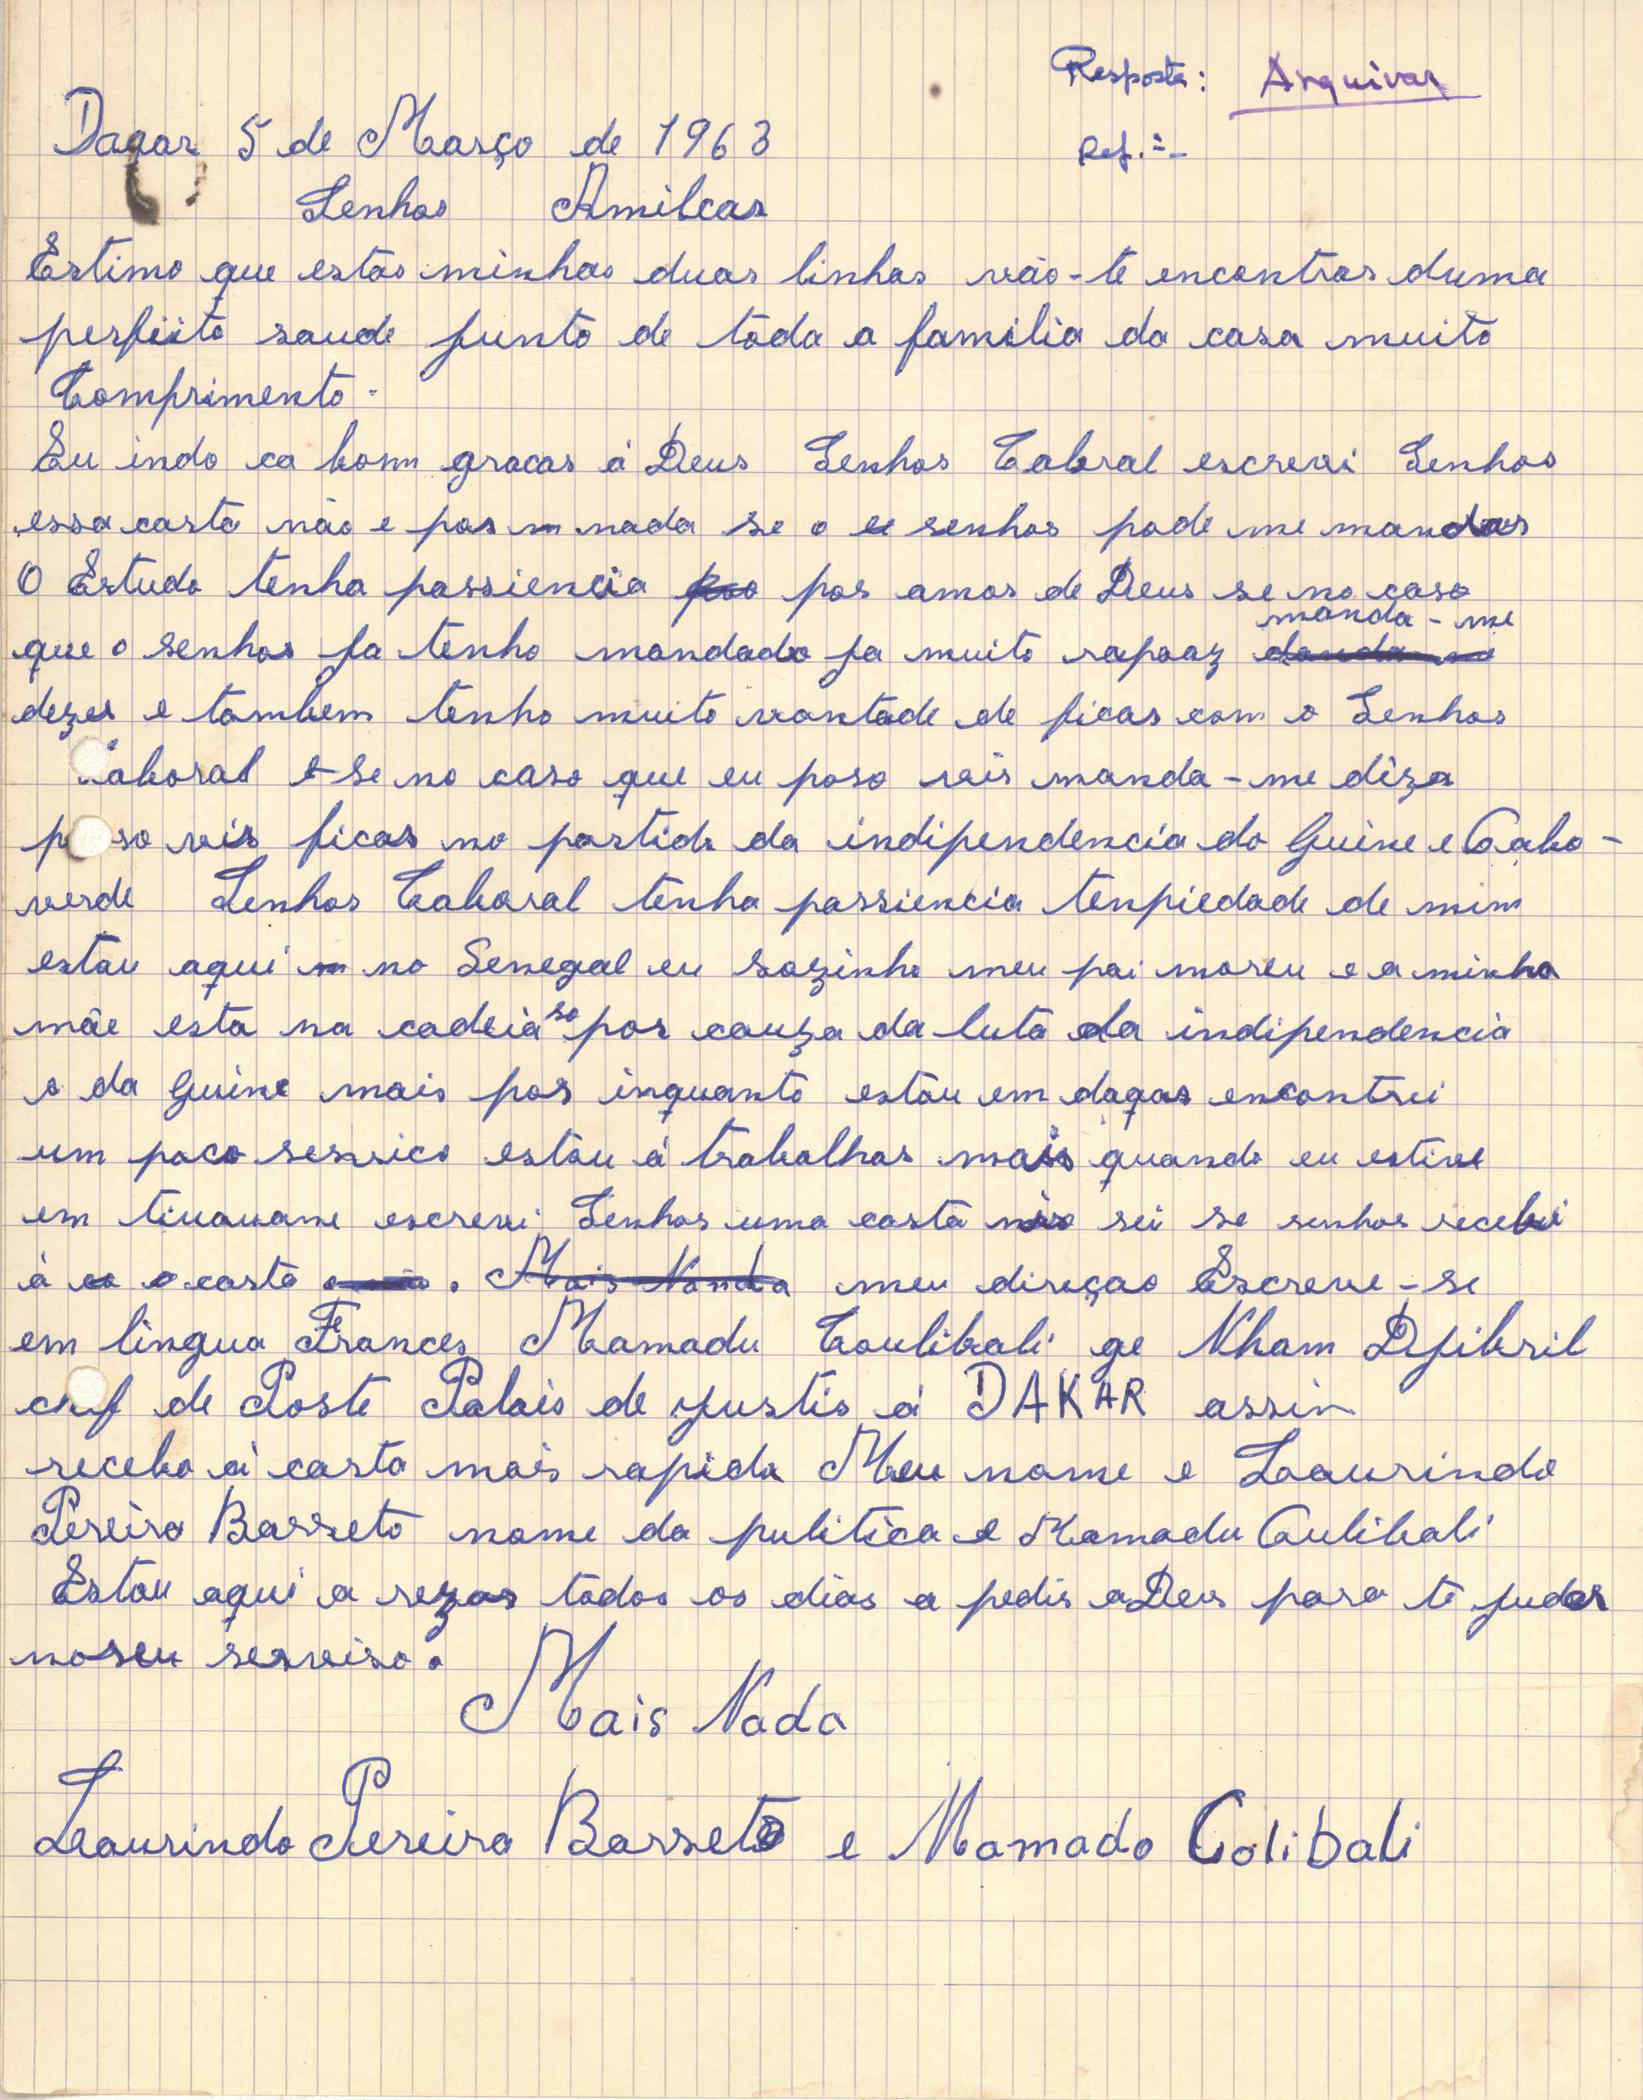 Resposta: Arquivar
Dagar 5 de Março de 1963
Ref.:-
Senhor Amilcar
Estimo que estas minhas duas linhas vão-te encontrar duma
perfeito saude junto de tôda a familia da casa muito
Comprimento.
Eu indo ca bom gracas á Deus Senhor Cabral escrevi Senhor
essa carta não e por nada se o senhor pode me mandar
O Estudo tenha passiencia por amor de Deus se no caso
que o senhor ja tenho mandado ja muito rapaz manda-me
dezer e tambem tenho muito vontade de ficar com o Senhor
Caboral e se no caso que eu poso vir manda-me diza
poso vir ficar no partido da indipendencia do Guine e Cabo-
verde Senhor Caboral tenha passiencia tenpiedade de mim
estou aqui no Senegal eu sozinho meu pai moreu e a minha
mãe esta na cadeia so por cauza da luta da indipendencia
o da Guine mais por inquanto estou em dagar encontrei
um poco servico estou á trabalhar mais quando eu estive
em tivavane escrevi Senhor uma carta não sei se senhor recebei
á carta . Mais Nanda meu direçao Escreve-se
em lingua Frances Mamadu Coulibali ge Nham Djibril
chef de Poste Palais de yustis á DAKAR assin
recebo á carta mais rapida Meu nome e Laurindo
Pereira Barreto nome da pulitica e Mamadu Culibali
Estou aqui a rezar todos os dias a pedir a Deus para te judar
no seu serviso.
Mais Nada
Laurindo Pereira Barreto e Mamado Colibali